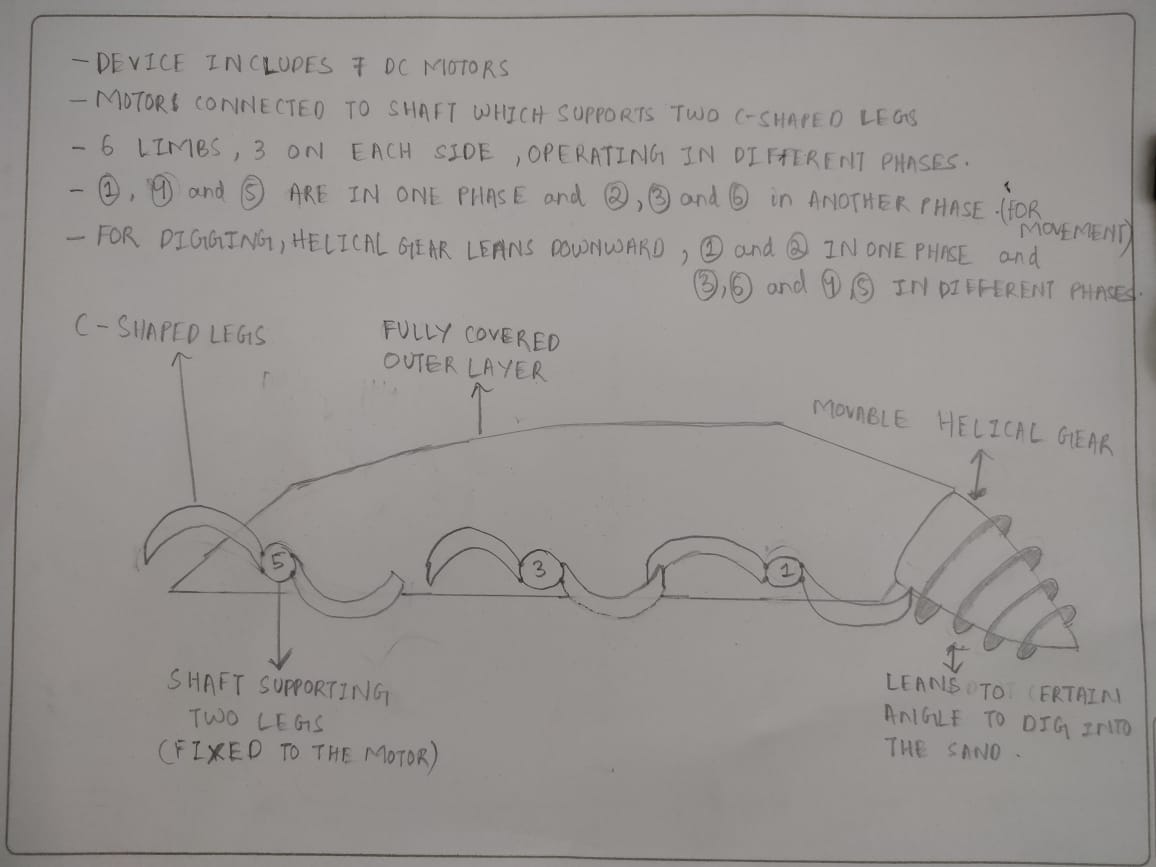 - DEVICE INCLUDES 7 DC MOTORS
- MOTORS CONNECTED TO SHAFT WHICH SUPPORTS TWO C-SHAPED LEGS
- 6 LIMBS, 3 ON EACH SIDE, OPERATING IN DIFFERENT PHASES.
- ①, ④ and ⑤ ARE IN ONE PHASE and ②, ③ and ⑥ in ANOTHER PHASE. (FOR
MOVEMENT)
- FOR DIGGING, HELICAL GEAR LEANS DOWNWARD, ① and ② IN ONE PHASE and
③, ⑥ and ④ ⑤ IN DIFFERENT PHASES.
C-SHAPED LEGS
FULLY COVERED
OUTER LAYER
MOVABLE HELICAL GEAR
5
3
1
SHAFT SUPPORTING
TWO LEGS
(FIXED TO THE MOTOR)
LEANS TO CERTAIN
ANGLE TO DIG INTO
THE SAND.